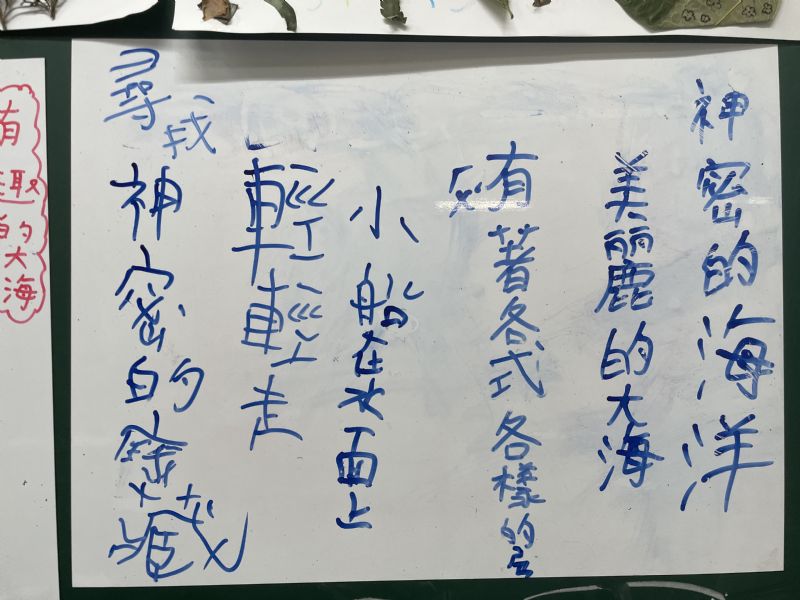 神密的海洋
美麗的大海
有著各式各樣的
小船在水面上
輕輕走
尋找
神密的藏
有趣的大海